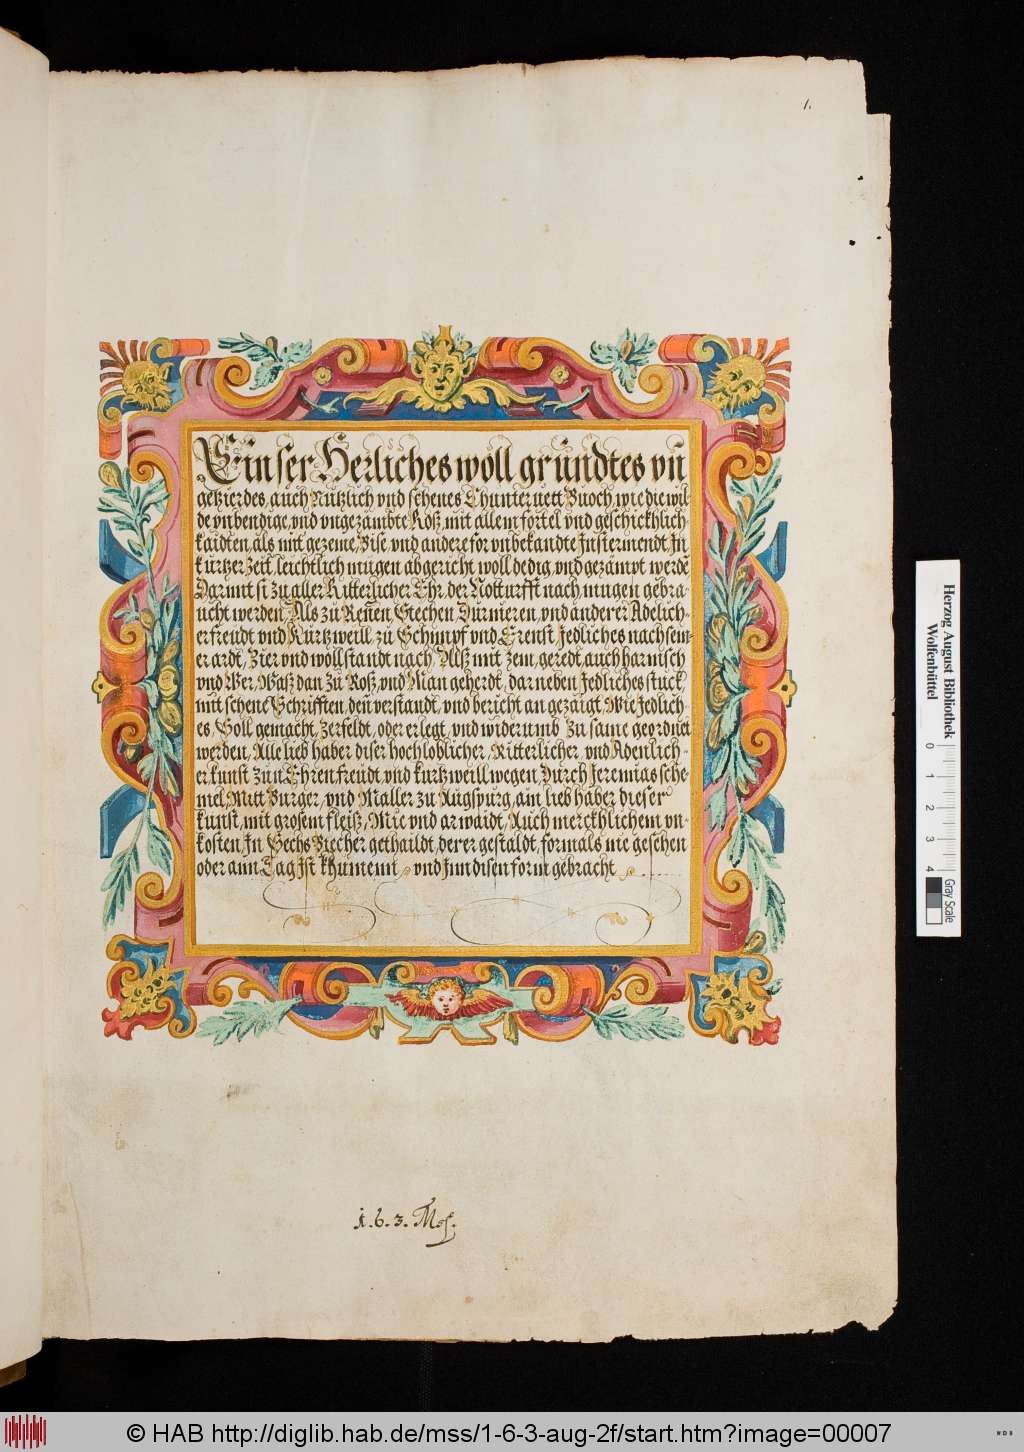 1.
Ein ser Herliches woll gründtes vn̄
getzierdes, auch Nutzlich vnd schenes Thunternett Buoch, wie die wil-
de vnbendige, vnd vngezambte Roß, mit allem fortel vnd geschickhlich-
kaidten, als mit gezeme, Bise, vnd andere for vnbekandte Instermendt, In
kurtzer Zeit, leichtlich mugen abgericht woll dedig, vnd gezampt werdē
Darmit si zu aller Ritterlicher Ehr, der Notturfft nach, mugen gebra-
ucht werden, Als zu Reñen, Stechen, Durnieren, vnd anderer Adelich-
er freudt vnd Kurtzweill, zu Schimpf vnd Ernst, Jedliches nach sein-
er ardt, Zier vnd wollstandt nach, Alß mit zem, geredt, auch harnisch
vnd Wer, Waß dan Zu Roß, vnd Man geherdt, dar neben Jedliches stuck,
mit schene Schrifften, den verstandt, vnd bericht an gezaigt, Wie Jedlich-
es, Soll gemacht, Zerfeldt, oder erlegt, vnd widerumb Zu same geordnet
werden, Alle lieb haber diser hochloblicher, Ritterlicher vnd Adenlich-
er kunst zun Ehren freudt vnd kurtzweill wegen, Durch Jeremias sche-
mel, Mitt Burger, vnd Maller zu Augspurg, am lieb haber dieser
kunst, mit grosem fleiß, Mie vnd arwaidt, Auch merckhlichem vn-
kosten, In Sechs Biecher gethaildt, derer gestaldt, formals nie gesehen
oder ann Tag Ist khumenn, vnd Inn disen form gebracht
1. 6. 3. Msf.
Herzog August Bibliothek
Wolfenbüttel
0 1 2 3 4
Gray Scale
© HAB http://diglib.hab.de/mss/1-6-3-aug-2f/start.htm?image=00007